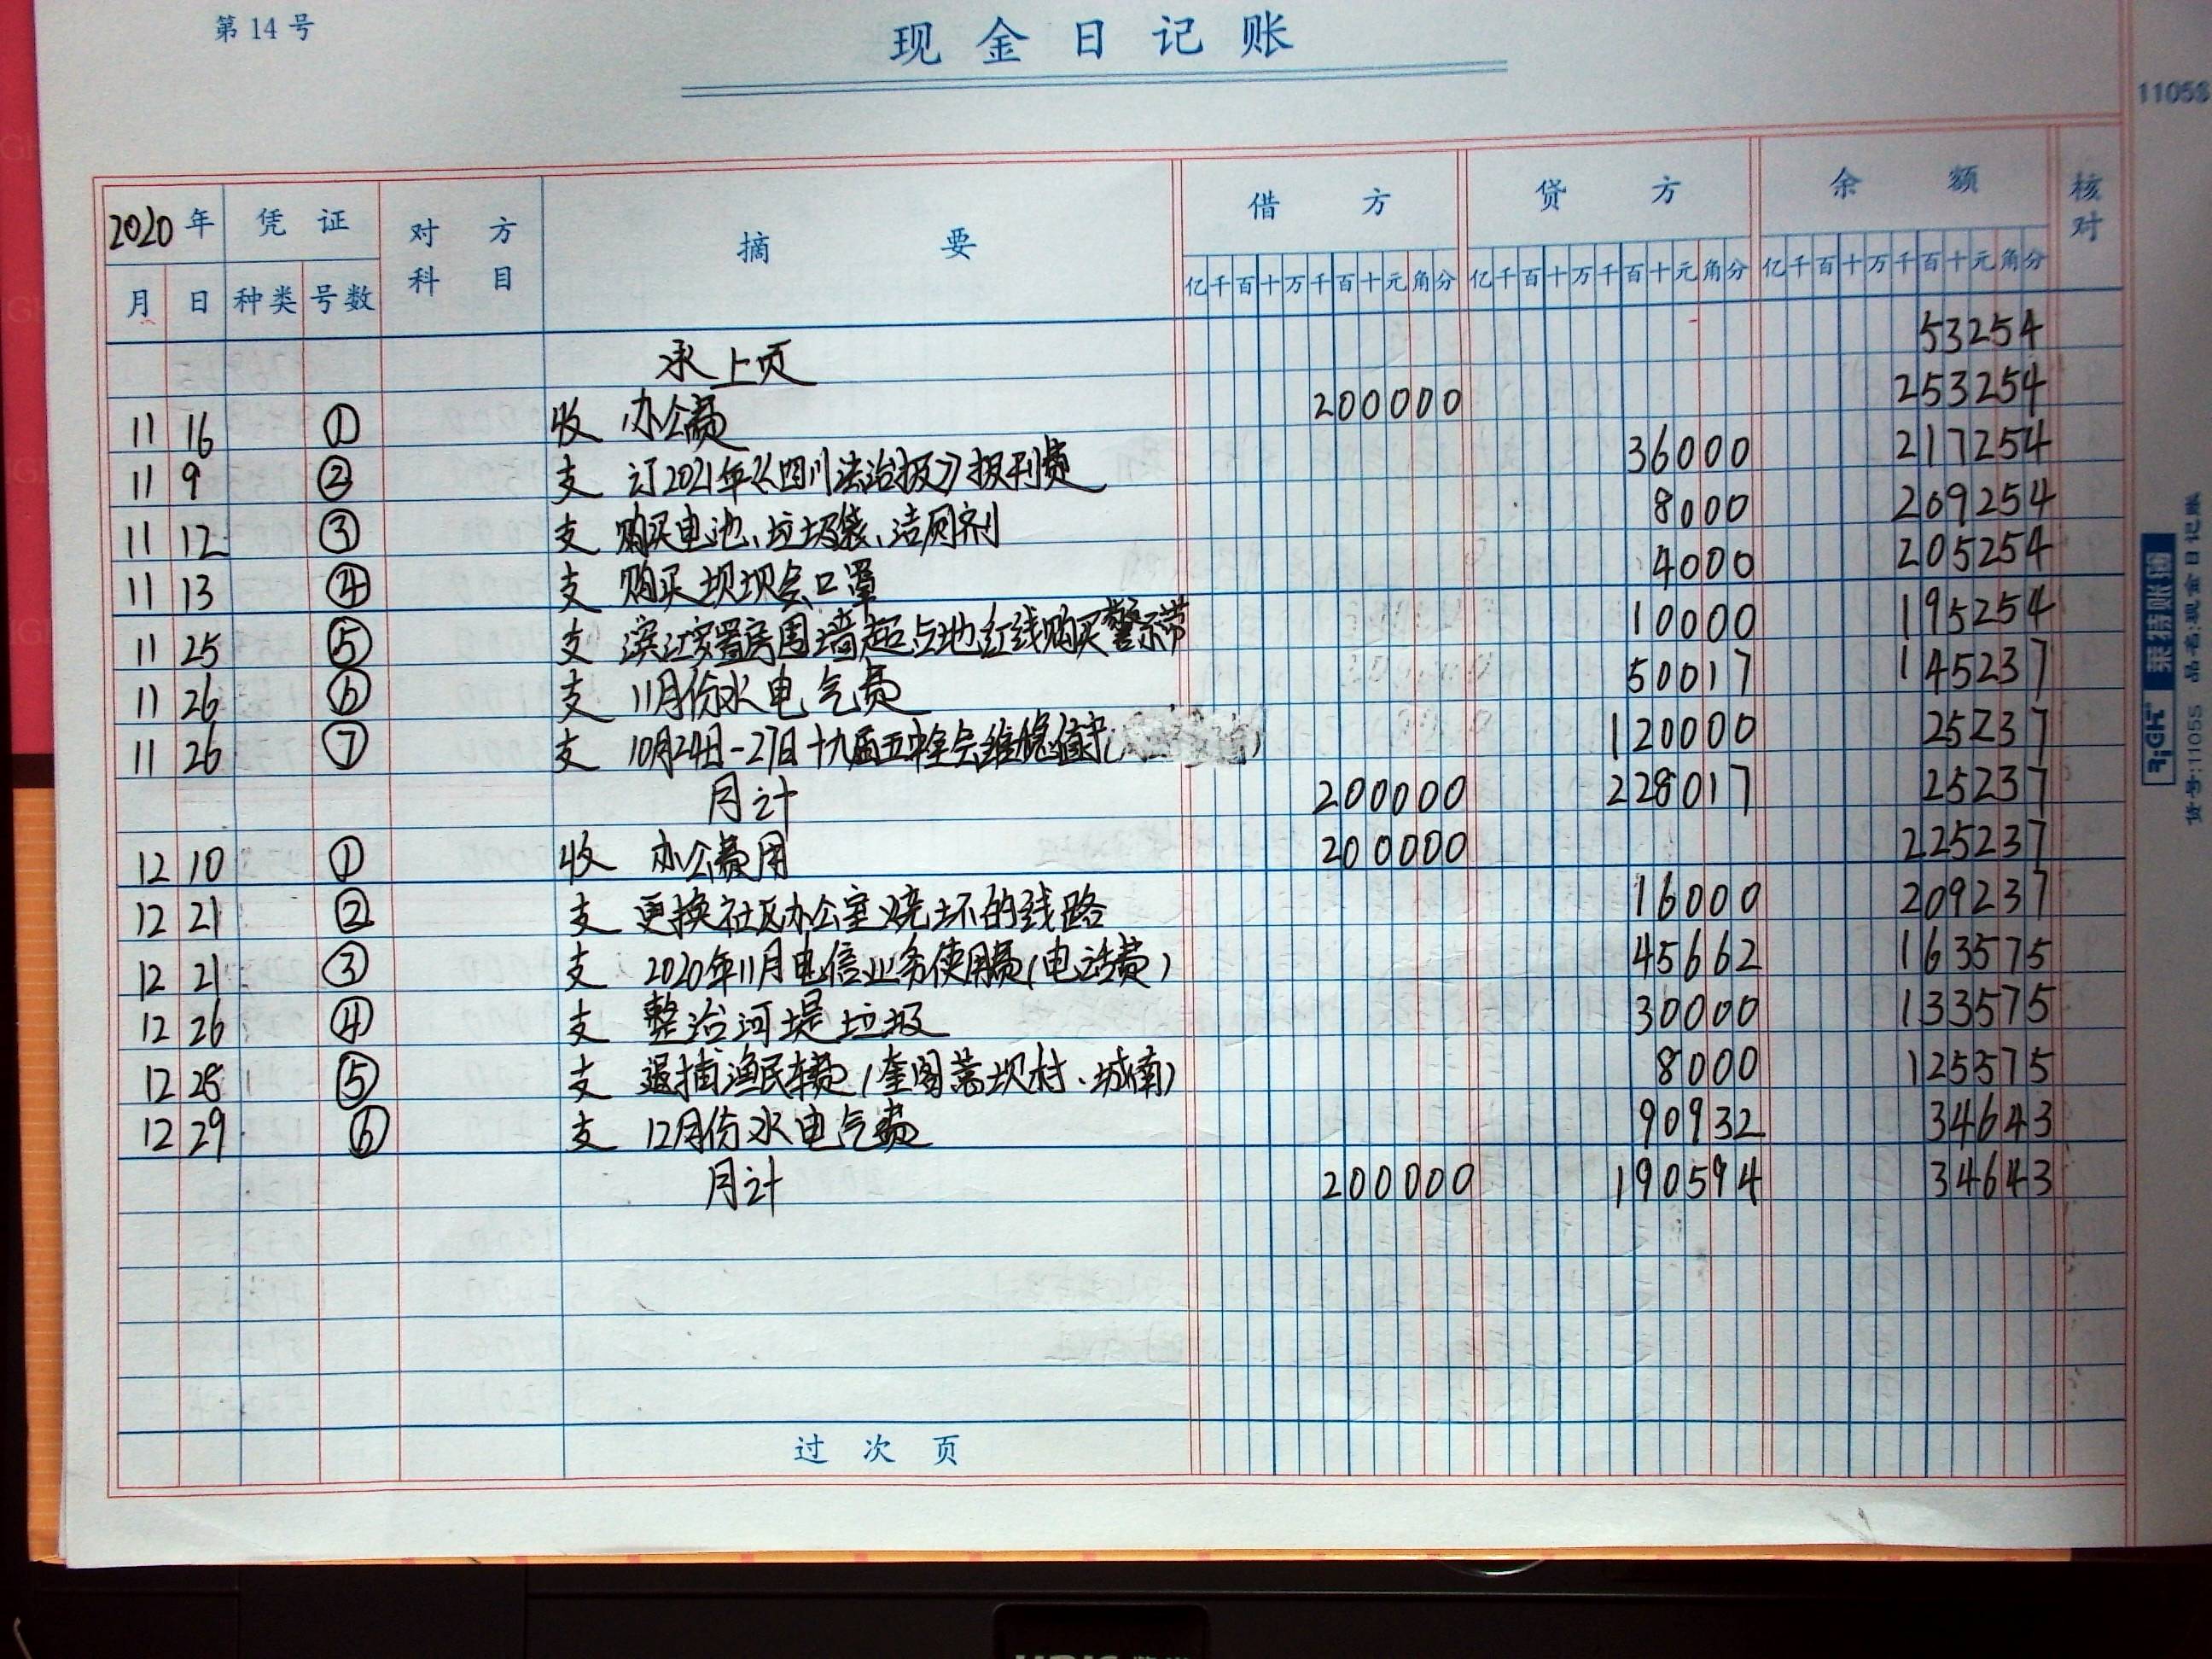 第 14 号
现金日记账
1105S
2020 年 凭证 对方科目 摘要 借方 贷方 余额 核对
月 日 种类 号数 亿千百十万千百十元角分 亿千百十万千百十元角分 亿千百十万千百十元角分
承上页 53254
11 16 ① 收 办公费 200000 253254
11 9 ② 支 订2021年《四川法治报》报刊费 36000 217254
11 12 ③ 支 购买电池、垃圾袋、洁厕剂 8000 209254
11 13 ④ 支 购买坝坝会口罩 4000 205254
11 25 ⑤ 支 滨江安置房围墙起点地红线购买警示带 10000 195254
11 26 ⑥ 支 11月份水电气费 50017 145237
11 26 ⑦ 支 10月24日-27日十九届五中全会维稳值守 120000 25237
月计 200000 228017 25237
12 10 ① 收 办公费用 200000 225237
12 21 ② 支 更换社区办公室烧坏的线路 16000 209237
12 21 ③ 支 2020年11月电信业务使用费(电话费) 45662 163575
12 26 ④ 支 整治河堤垃圾 30000 133575
12 28 ⑤ 支 退捕渔民车费(奎阁菩坝村、城南) 8000 125575
12 29 ⑥ 支 12月份水电气费 90932 34643
月计 200000 190594 34643
过次页
莱特账簿
货号:1105S 品名:现金日记账